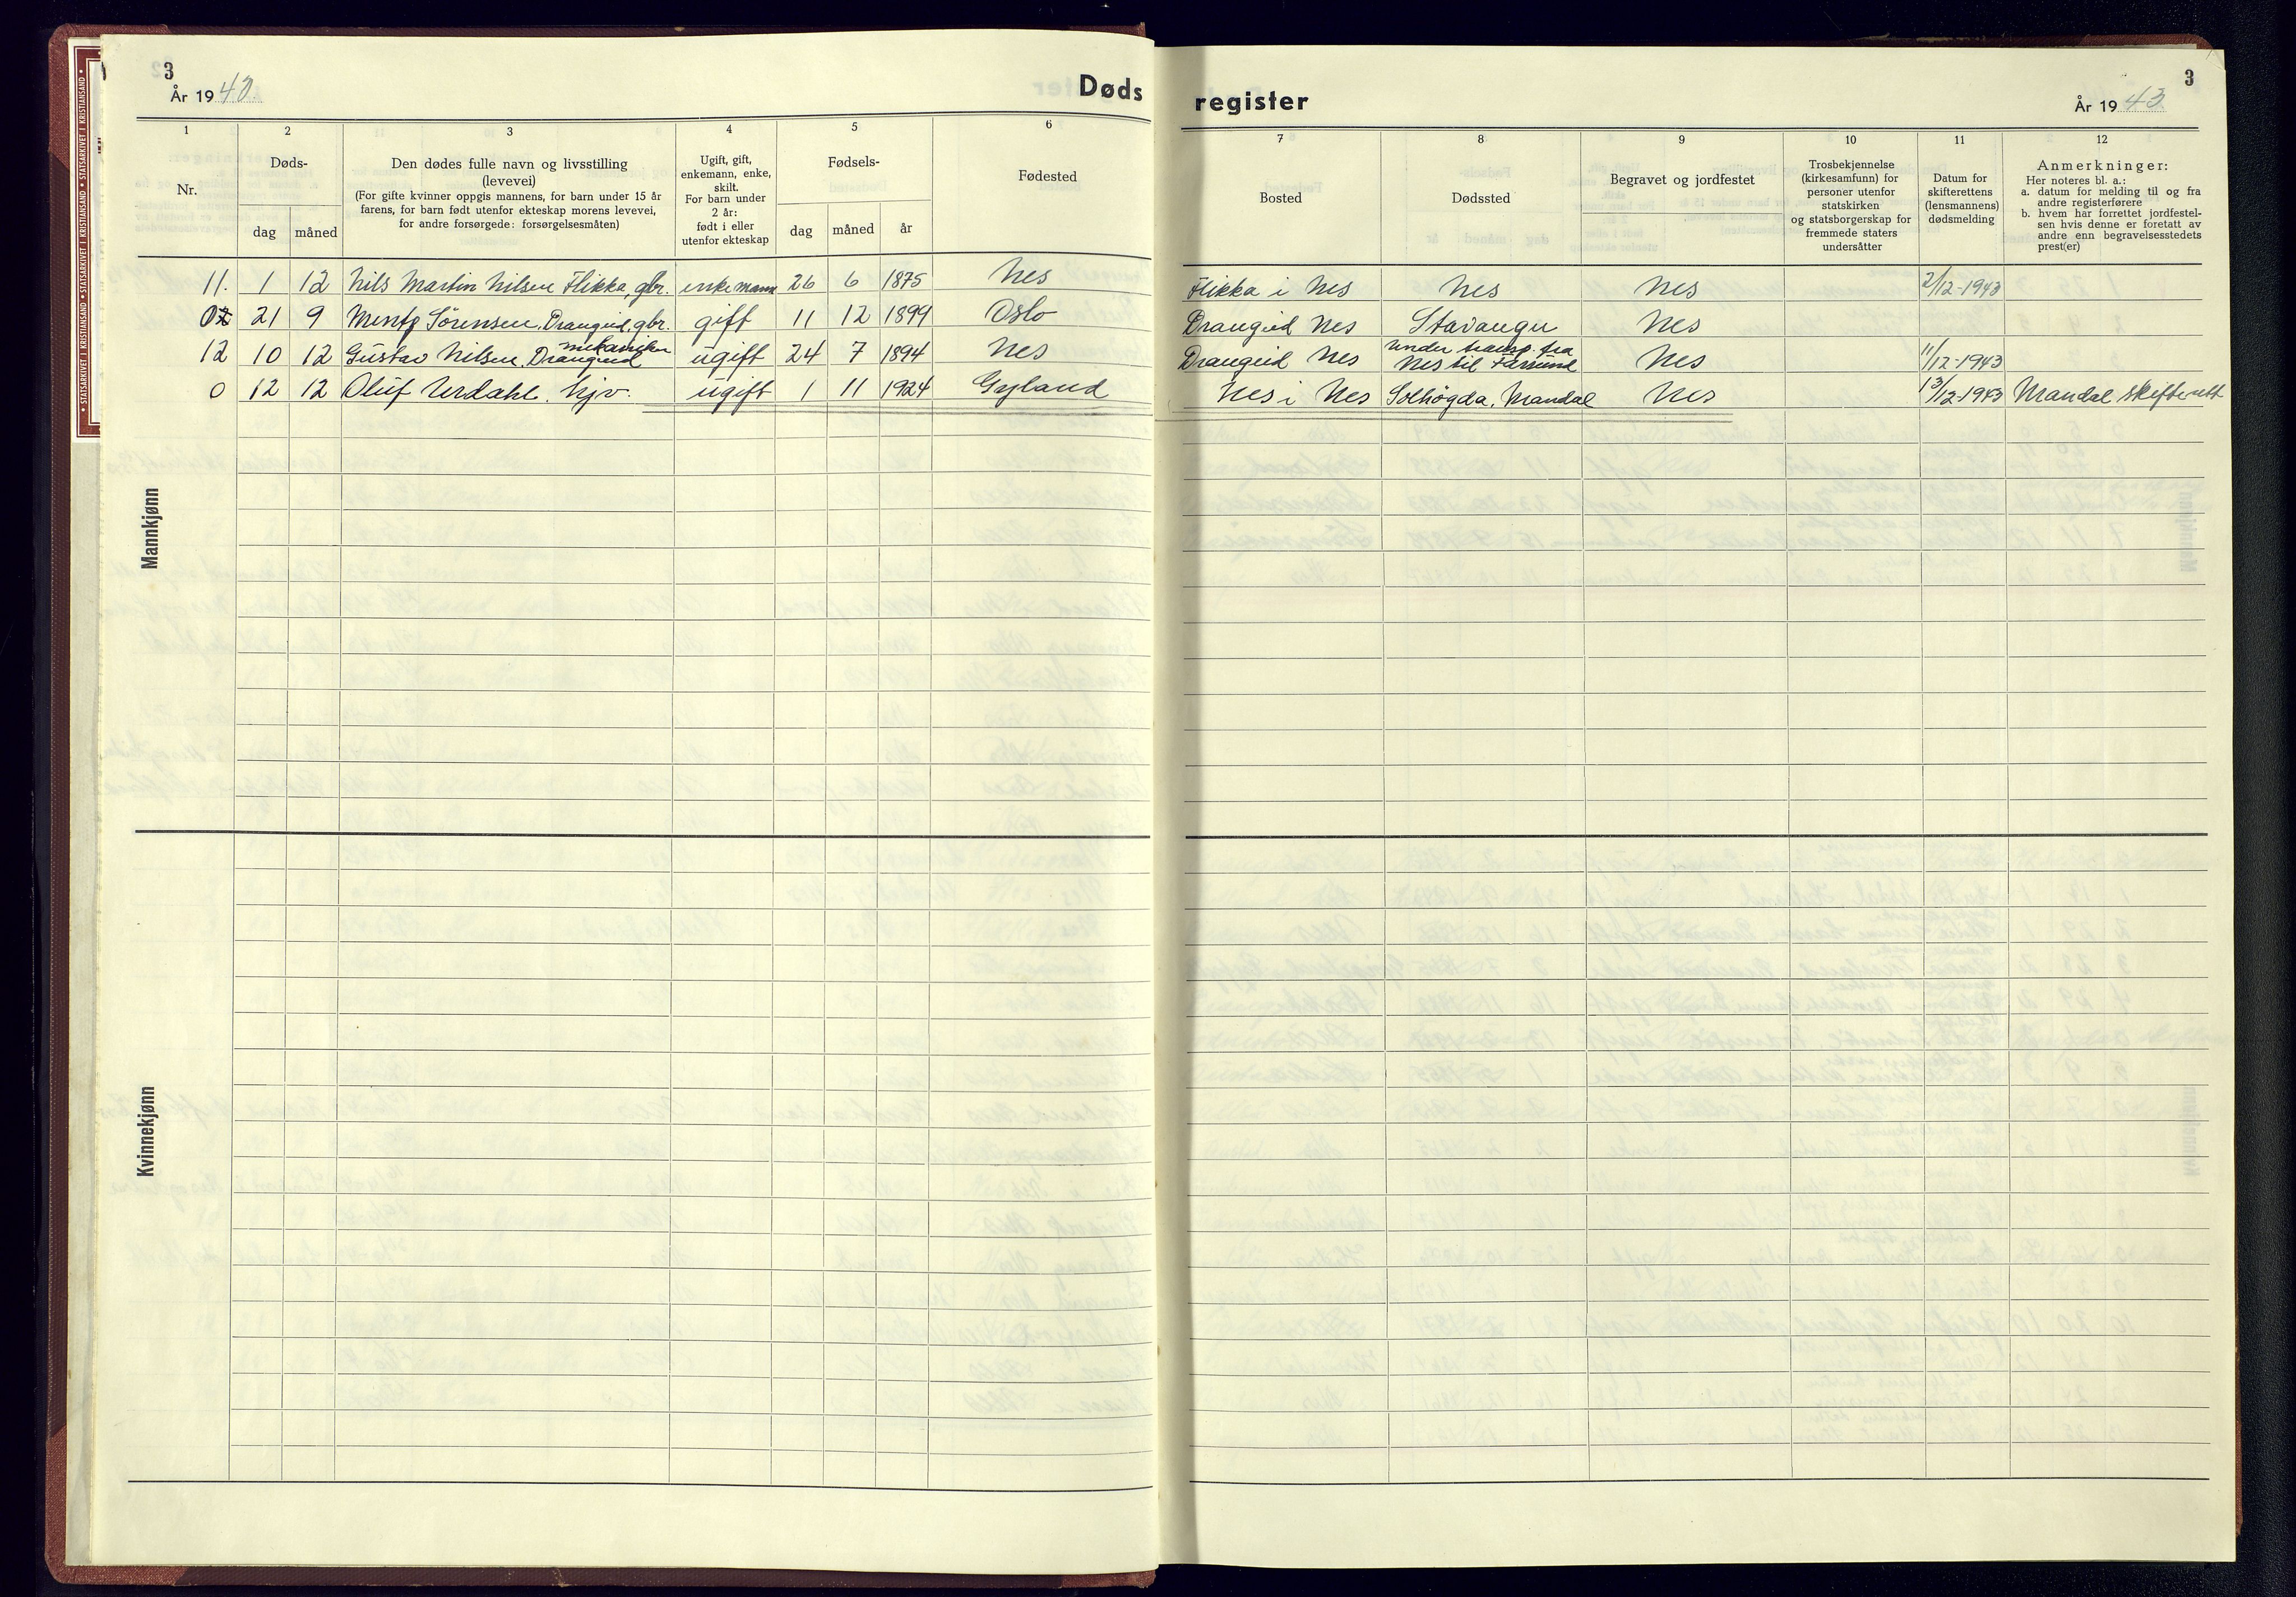 3
År 1943.
Døds
register
3
År 1943.
1 2 3 4 5 6 7 8 9 10 11 12
Nr.
Døds-
dag måned
Den dødes fulle navn og livsstilling
(levevei)
(For gifte kvinner oppgis mannens, for barn under 15 år
farens, for barn født utenfor ekteskap morens levevei,
for andre forsørgede: forsørgelsesmåten)
Ugift, gift,
enkemann, enke,
skilt.
For barn under
2 år:
født i eller
utenfor ekteskap
Fødsels-
dag måned år
Fødested
Bosted
Dødssted
Begravet og jordfestet
Trosbekjennelse
(kirkesamfunn) for
personer utenfor
statskirken
og statsborgerskap for
fremmede staters
undersåtter
Datum for
skifterettens
(lensmannens)
dødsmelding
Anmerkninger:
Her noteres bl. a.:
a. datum for melding til og fra
andre registerførere
b. hvem har forrettet jordfestel-
sen hvis denne er foretatt av
andre enn begravelsesstedets
prest(er)
11. 1 12 Nils Martin Nilsen Flikka, gbr. enkemann 26 6 1875 Nes Flikka i Nes Nes Nes 2/12-1943
0 21 9 Mentz Sörensen, Drangeid, gbr. gift 11 12 1899 Oslo Drangeid Nes Stavanger Nes
mekaniker under transp. fra
12 10 12 Gustav Nilsen, Drangeid ugift 24 7 1894 Nes Drangeid Nes Nes til Farsund Nes 11/12-1943
0 12 12 Oluf Urdahl. hjv. ugift 1 11 1924 Gyland Nes i Nes Solhögda, Mandal Nes 13/12-1943 Mandal skifterett
Mannkjønn
Kvinnekjønn
STATSARKIVET I KRISTIANSAND • STATSARKIVET I KRISTIANSAND • STATSARKIVET I KRISTIANSAND